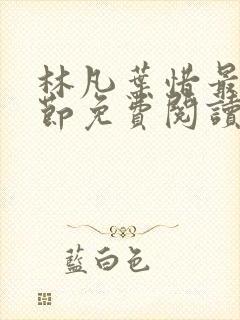 林凡葉惜最
節免費閱讀
藍白色